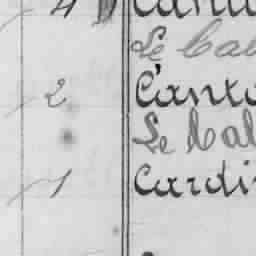 4
Le Cal
2 Canto
Le Cal
1 Cardi